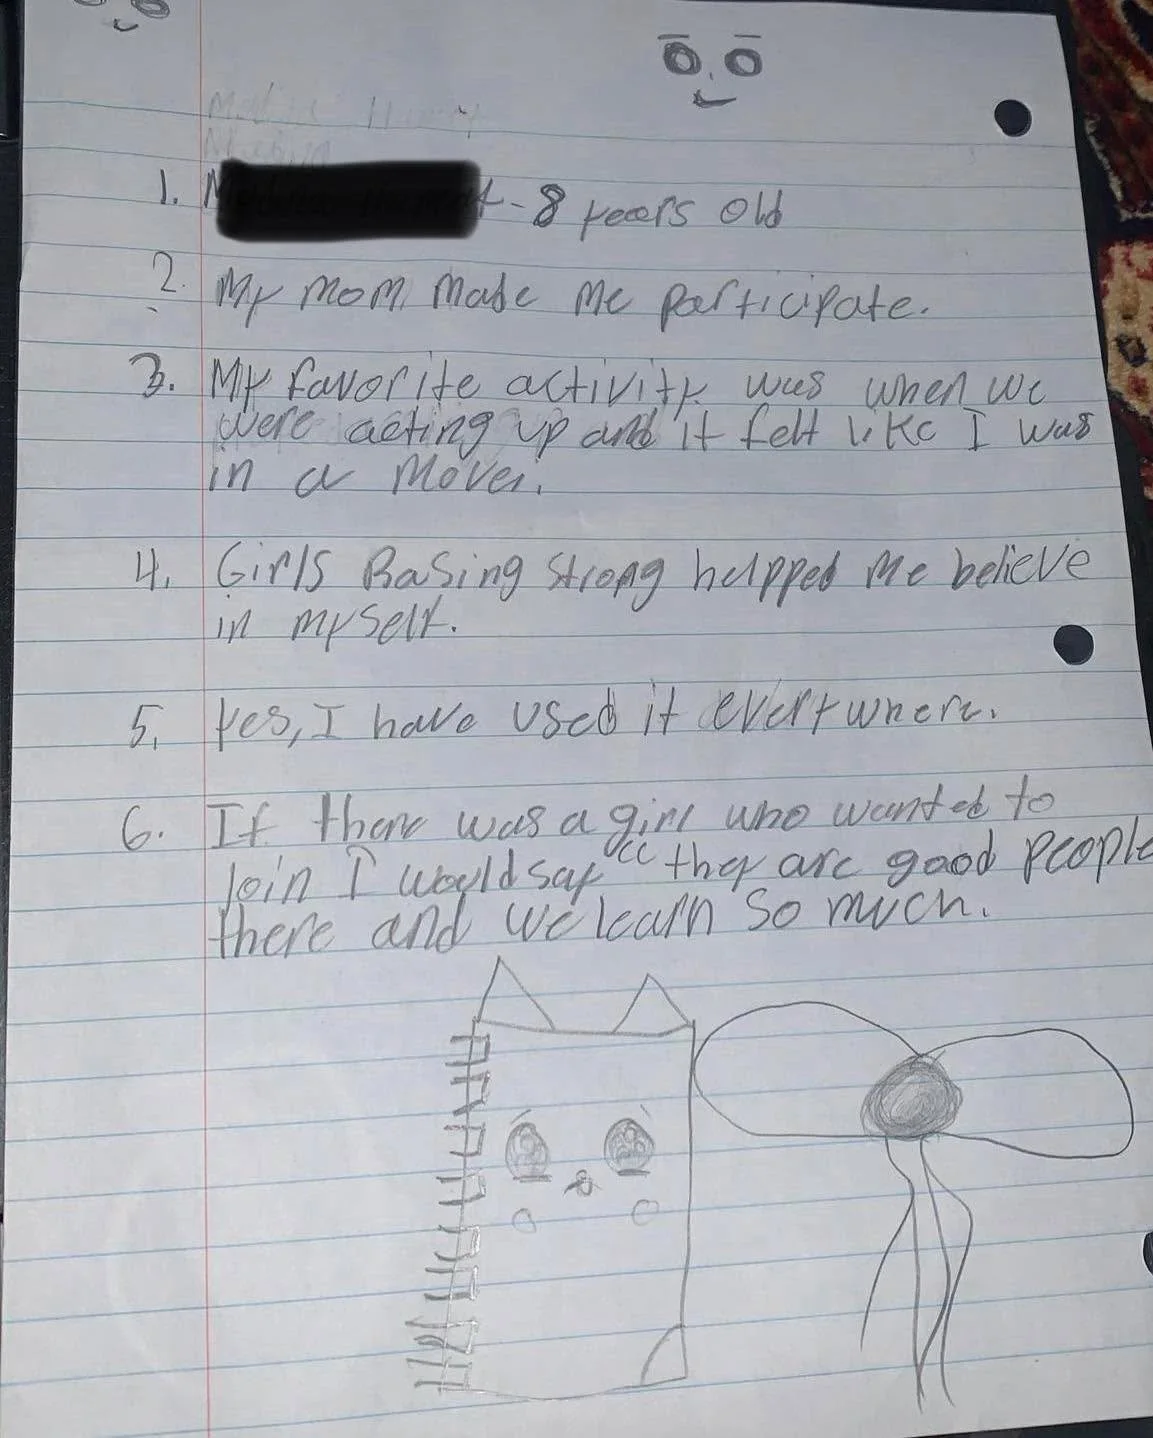 1. - 8 years old
2. My mom made me participate.
3. My favorite activity was when we
were acting up and it felt like I was
in a Movei.
4. Girls Rasing strong helpped me believe
in myself.
5. Yes, I have used it everywhere.
6. If there was a girl who wanted to
join I would say “they are good people
there and we learn so much.